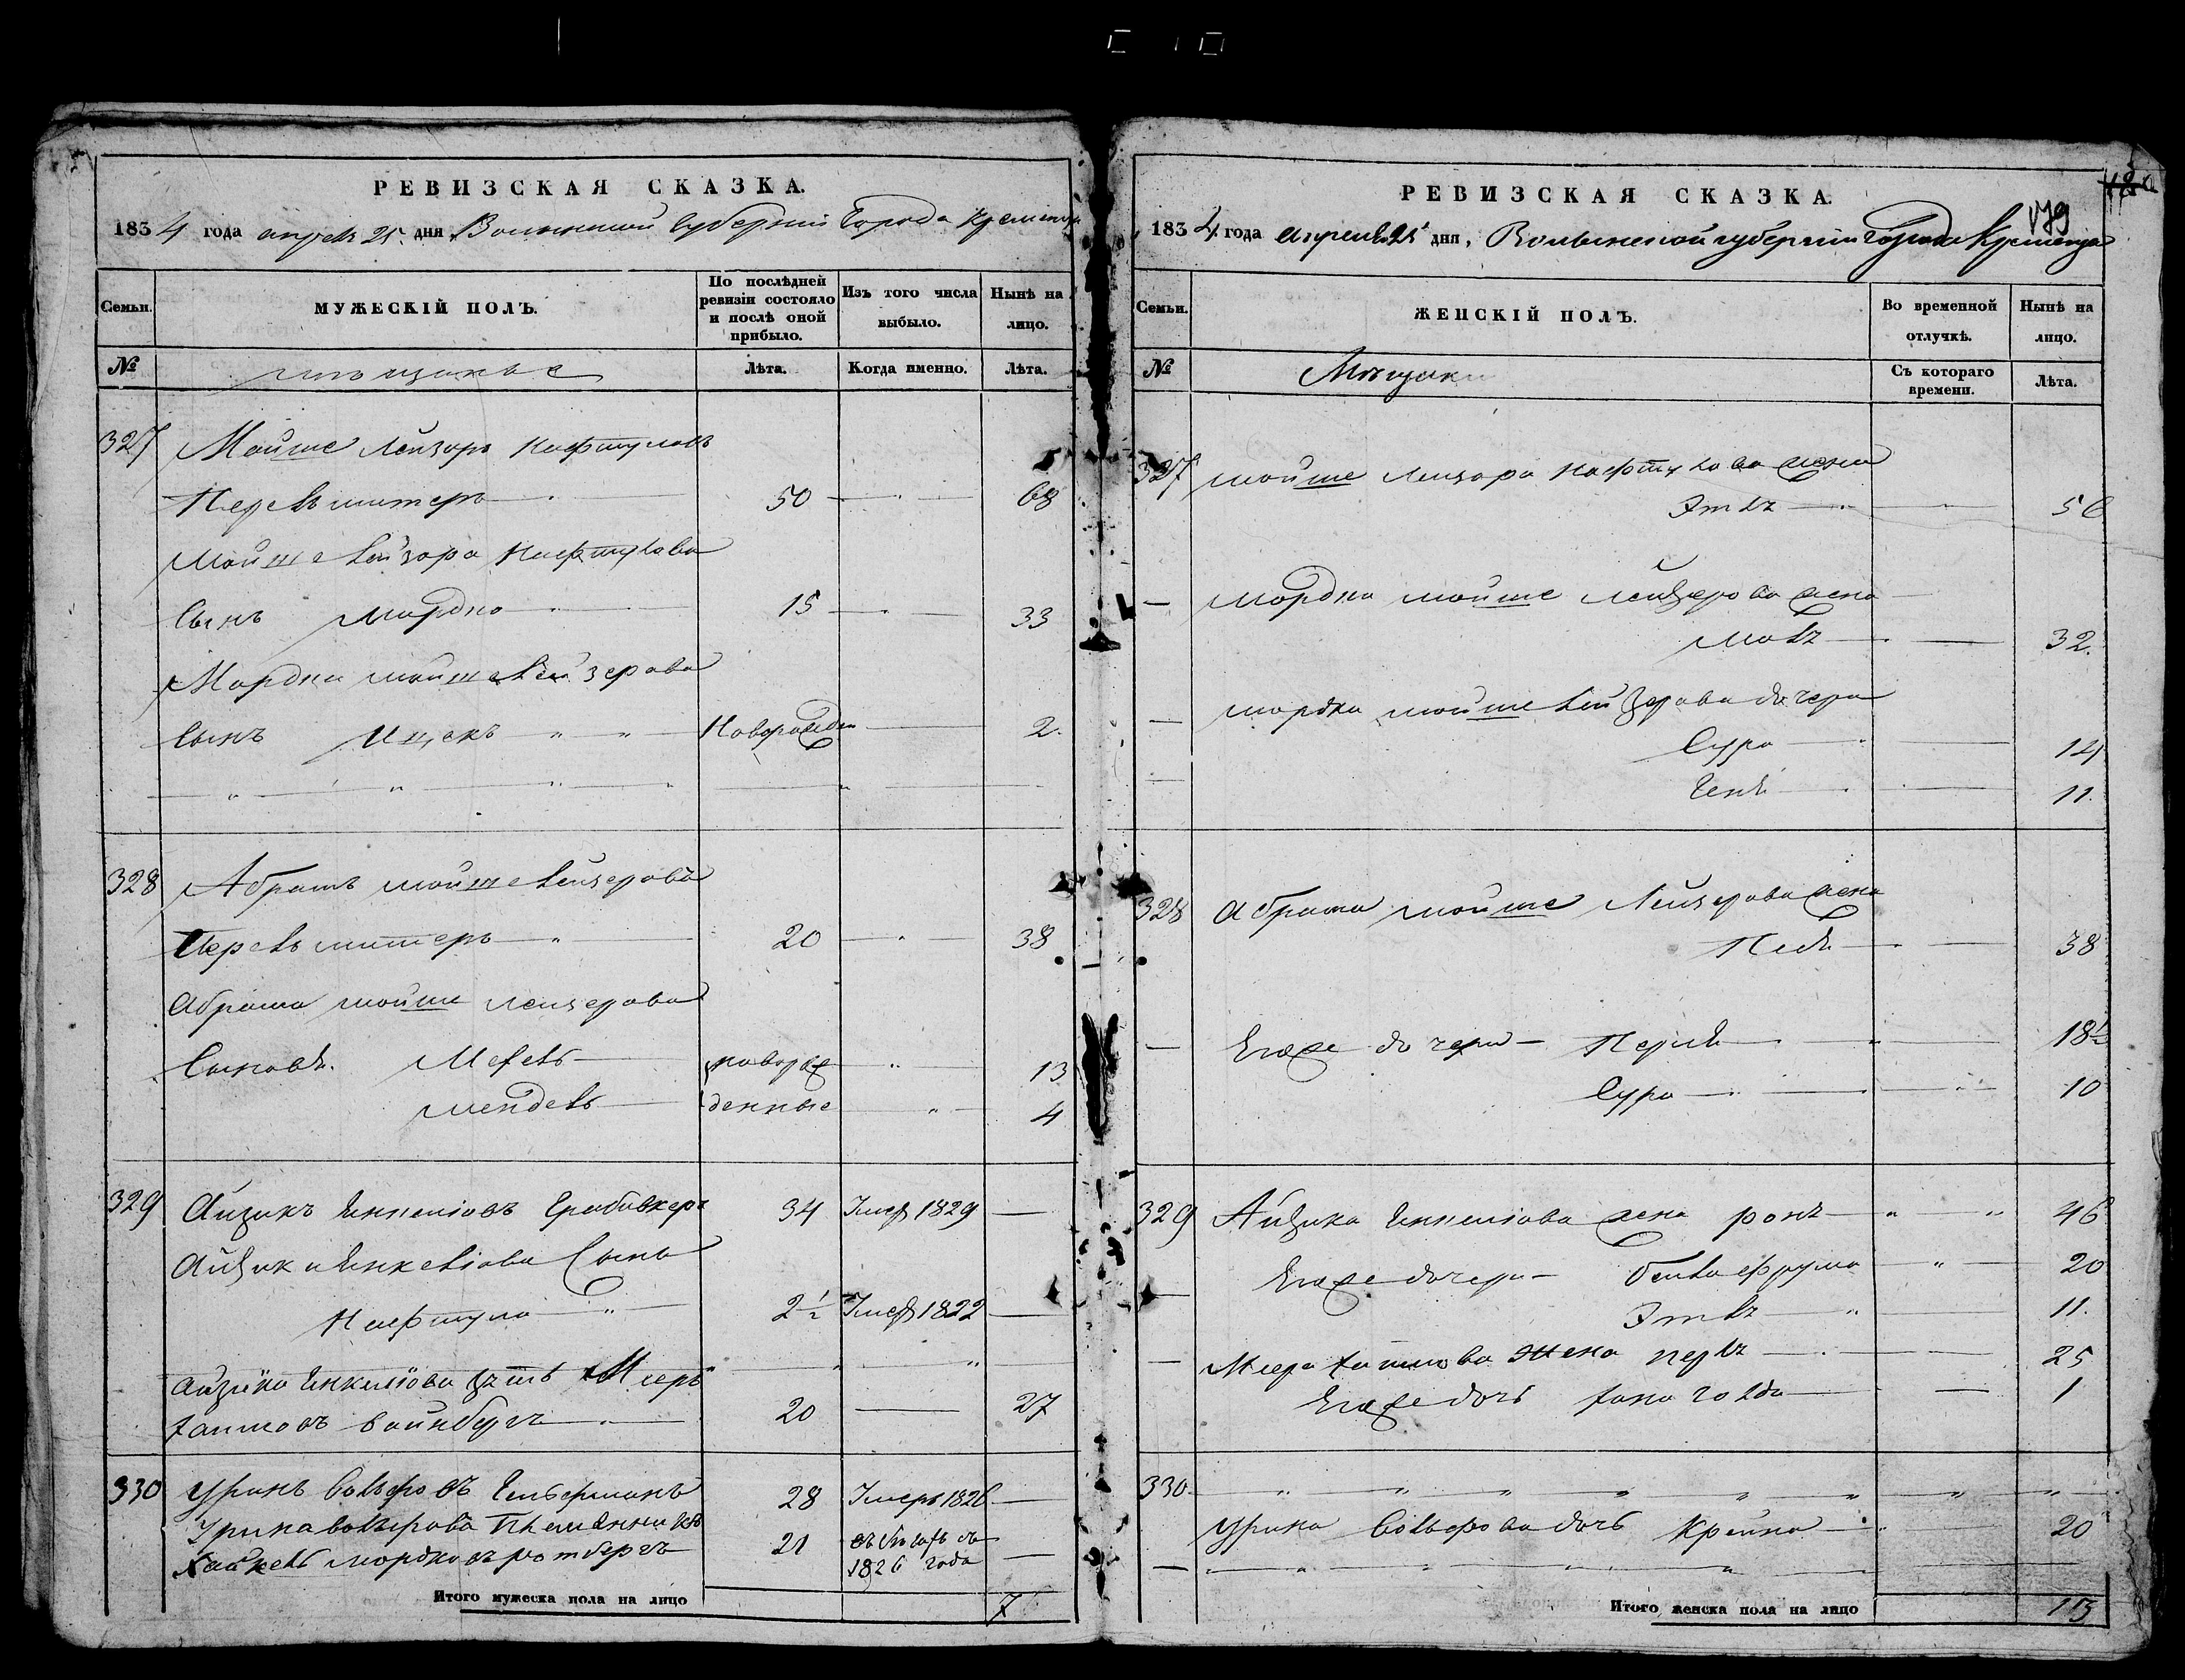 РЕВИЗСКАЯ СКАЗКА.
1834 года апреля 25 дня Волынской Губерніи Города Кременца
Семьи.
МУЖЕСКІЙ ПОЛЪ.
По послѣдней ревизіи состояло и послѣ оной прибыло.
Изъ того числа выбыло.
Нынѣ на лицо.
№
мѣщанъе
Лѣта.
Когда именно.
Лѣта.
327 Мойше Лейзоръ Нафтуловъ
Перельмитеръ 50 68
Мойше Лейзора Нафтулова
Сынъ Мордко 15 33
Мордки Мойше Лейзерова
Сынъ Ицекъ Новорожден 2.
328 Абрамъ Мойше Лейзеровъ
Перельмитеръ 20 38
Абрама Мойше Лейзерова
Сыновя. Мехель новорож 13
Мендель денные 4
329 Айзикъ Янкеліовъ 34 Умер 1829
Айзика Янкеліова Сынъ
Нафтула 2½ Умер 1822
Айзика Янкеліова зять Меер
Хаимовъ Вайнбергъ 20 27
330 Уринъ Вольфовъ Гельферманъ 28 Умеръ 1826
Урина Вольфова Племянникъ
Хайкель Мордковъ Ротбергъ 21 съ
1826 года
Итого мужеска пола на лицо 7
РЕВИЗСКАЯ СКАЗКА.
179
1834 года Апреля 25 дня, Волынской губерніи Города Кременца
Семьи.
ЖЕНСКІЙ ПОЛЪ.
Во временной отлучкѣ.
Нынѣ на лицо.
№
Мѣщаки
Съ котораго времени.
Лѣта.
327 Мойше Лейзора Нафтулова жена
Этля 56
Мордки Мойше Лейзерова жена
Маля 32.
Мордка Мойше Лейзерова дочери
Сура 14
Геня 11.
328 Абрама Мойше Лейзерова жена
Песя 38
Егоже дочери Перля 18½
Сура 10
329 Айзика Янкеліова жена роня 46
Егоже дочери Бейла Фрума 20
Этля 11.
Меера Хаимова жена перля 25
Егоже дочь Хана Голда 1
330
Урина Вольфова дочь Крейна 20
Итого женска пола на лицо 13